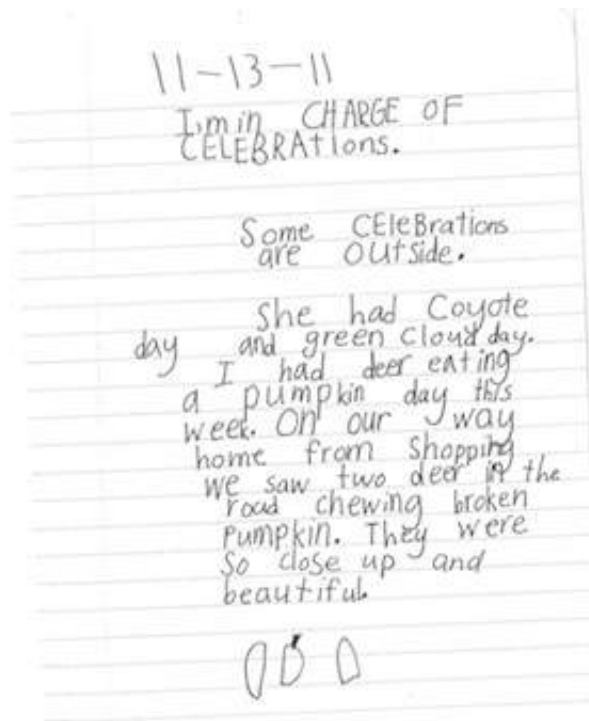 11-13-11
I,m in CHARGE OF
CELEBRAtions.
Some CEleBrations
are OUtside.
She had Coyote
day and green Cloud day.
I had deer eating
a pumpkin day this
week. On our way
home from Shopping
we saw two deer in the
road chewing broken
Pumpkin. They were
So close up and
beautiful.